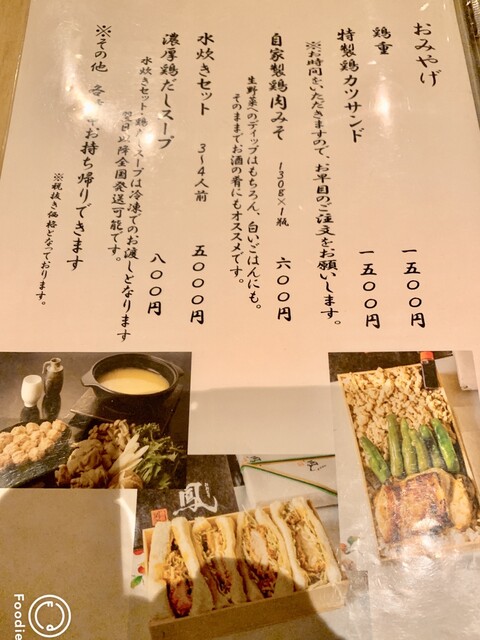 おみやげ
鶏重 一五〇〇円
特製鶏カツサンド 一五〇〇円
※お時間をいただきますので、お早目のご注文をお願いします。
自家製鶏肉みそ 130g×1瓶 六〇〇円
生野菜へのディップはもちろん、白いごはんにも。
そのままで、お酒の肴にもオススメです。
水炊きセット 3〜4人前 五〇〇〇円
濃厚鶏だしスープ 八〇〇円
水炊きセット、鶏だしスープは冷凍でのお渡しとなります
翌日以降全国発送可能です。
※その他 お持ち帰りできます
※税抜き価格となっております。
鳳
Foodie